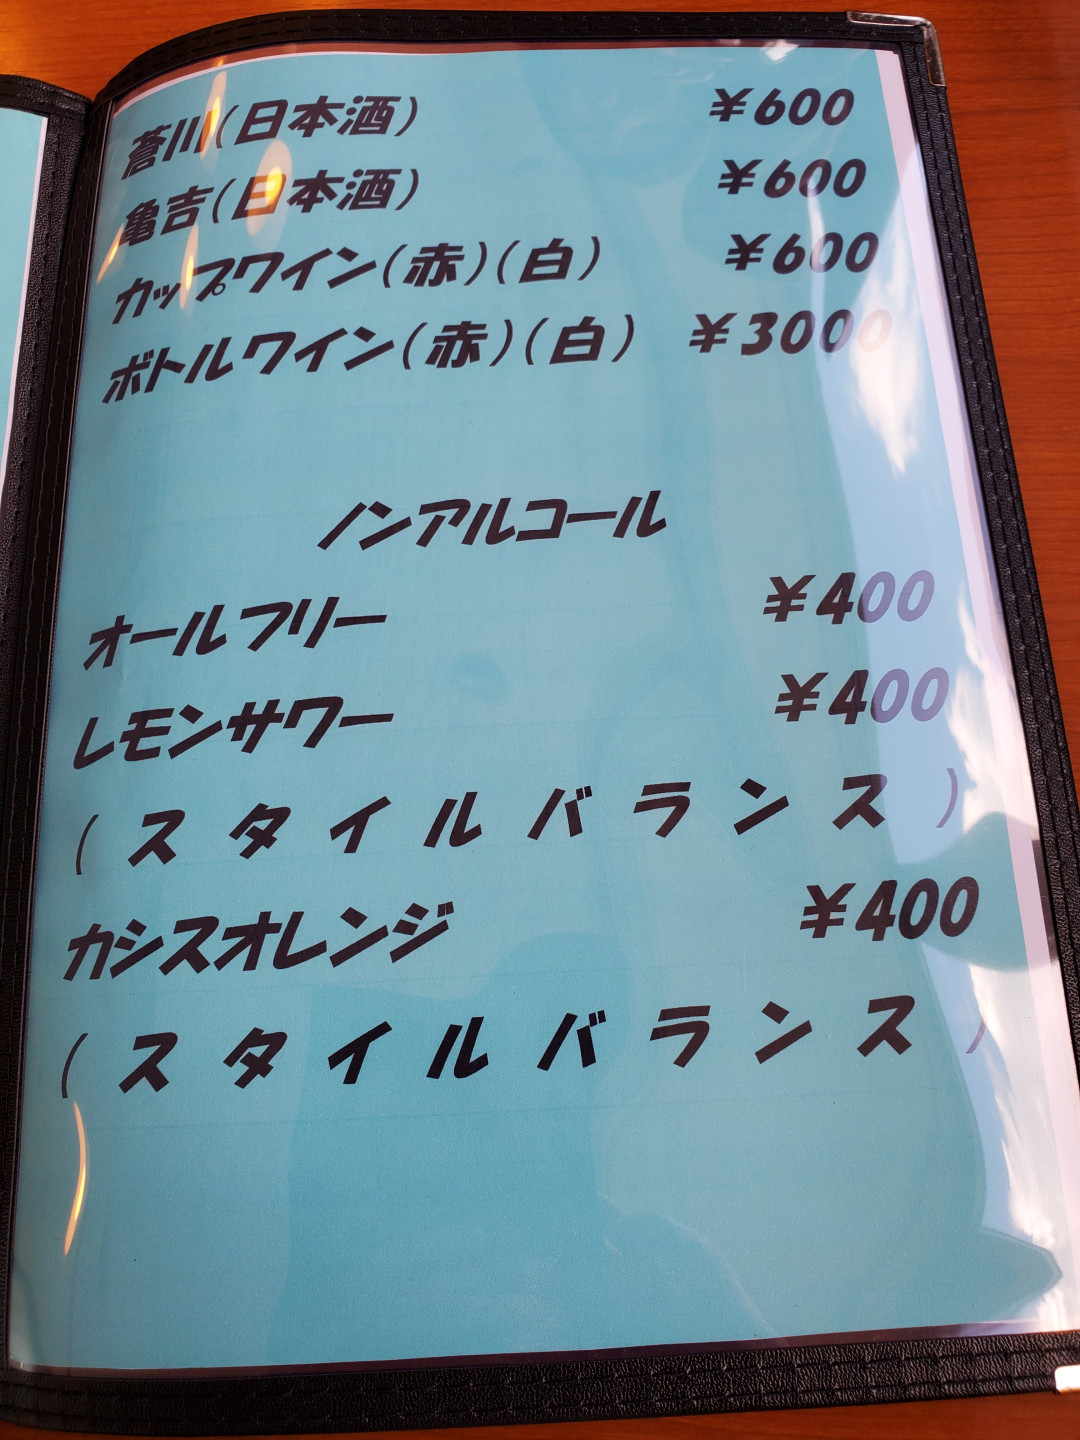 蒼川(日本酒) ¥600
亀吉(日本酒) ¥600
カップワイン(赤)(白) ¥600
ボトルワイン(赤)(白) ¥3000
ノンアルコール
オールフリー ¥400
レモンサワー ¥400
(スタイルバランス)
カシスオレンジ ¥400
(スタイルバランス)